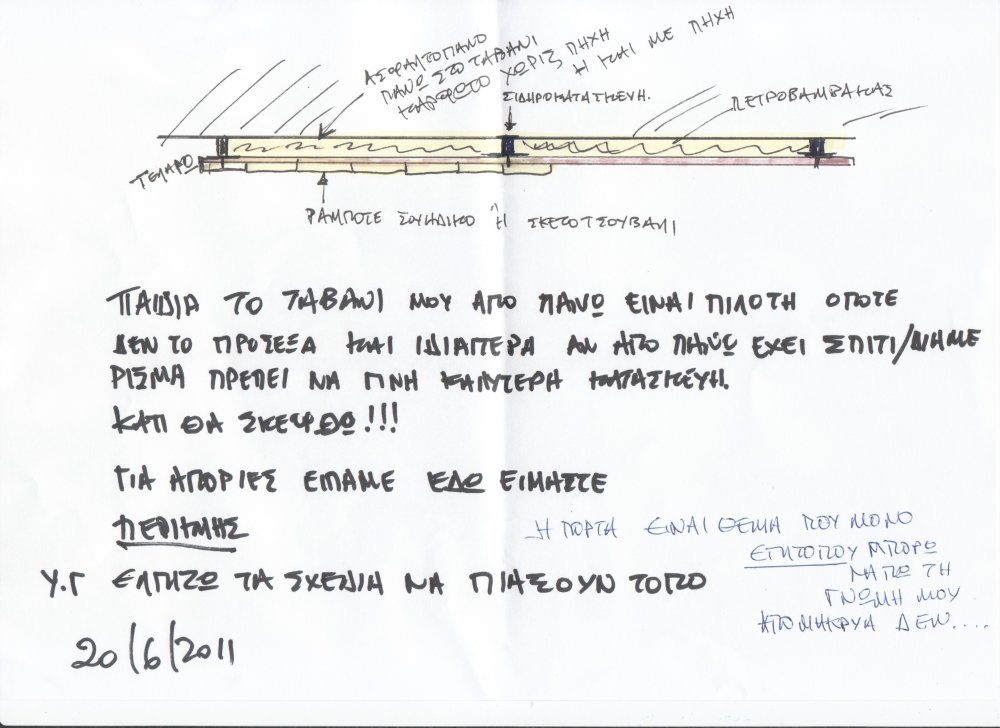 ΑΣΦΑΛΤΟΠΑΝΟ
ΠΑΝΩ ΣΤΟ ΤΑΒΑΝΙ
ΚΑΡΦΩΤΟ ΧΩΡΙΣ ΠΗΧΗ
Η ΚΑΙ ΜΕ ΠΗΧΗ
ΣΙΔΗΡΟΚΑΤΑΣΚΕΥΗ.
ΠΕΤΡΟΒΑΜΒΑΚΑΣ
ΤΕΛΑΡΟ
ΡΑΜΠΟΤΕ ΣΟΥΗΔΙΚΟ Ή ΣΚΕΤΟ ΤΣΟΥΒΑΛΙ
ΠΑΙΔΙΑ ΤΟ ΤΑΒΑΝΙ ΜΟΥ ΑΠΟ ΠΑΝΩ ΕΙΝΑΙ ΠΙΛΟΤΗ ΟΠΟΤΕ
ΔΕΝ ΤΟ ΠΡΟΣΕΞΑ ΚΑΙ ΙΔΙΑΙΤΕΡΑ ΑΝ ΑΠΟ ΠΑΝΩ ΕΧΕΙ ΣΠΙΤΙ/ΔΙΑΜΕ
ΡΙΣΜΑ ΠΡΕΠΕΙ ΝΑ ΓΙΝΗ ΚΑΛΥΤΕΡΗ ΚΑΤΑΣΚΕΥΗ.
ΚΑΤΙ ΘΑ ΣΚΕΦΘΩ!!!
ΓΙΑ ΑΠΟΡΙΕΣ ΕΙΠΑΜΕ ΕΔΩ ΕΙΜΑΣΤΕ
Η ΠΟΡΤΑ ΕΙΝΑΙ ΘΕΜΑ ΠΟΥ ΜΟΝΟ
ΕΠΙΤΟΠΟΥ ΜΠΟΡΩ
ΝΑ ΠΩ ΤΗ
ΓΝΩΜΗ ΜΟΥ
ΑΠΟ ΜΑΚΡΥΑ ΔΕΝ....
Υ.Γ ΕΛΠΙΖΩ ΤΑ ΣΧΕΔΙΑ ΝΑ ΠΙΑΣΟΥΝ ΤΟΠΟ
20/6/2011